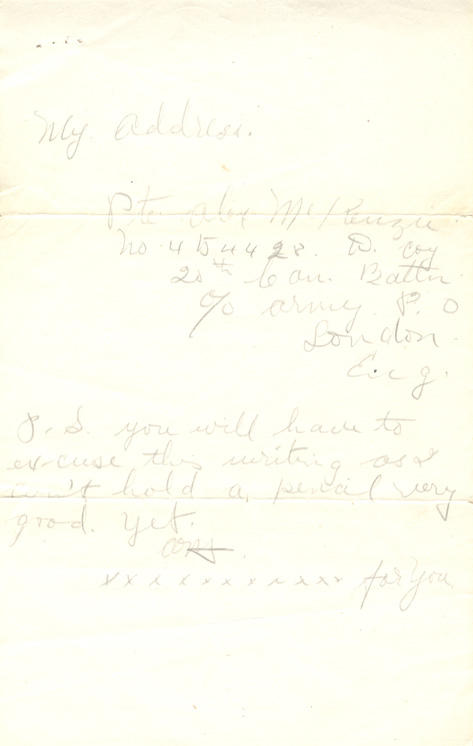 My address.
Pte Alex McKenzie
No 454428. D. Coy
20th Can. Battn.
c/o army P. O
London.
Eng.
P.S. you will have to
excuse this writing as I
can't hold a pencil very
good. yet.
x x x x x x x x x x x x for You